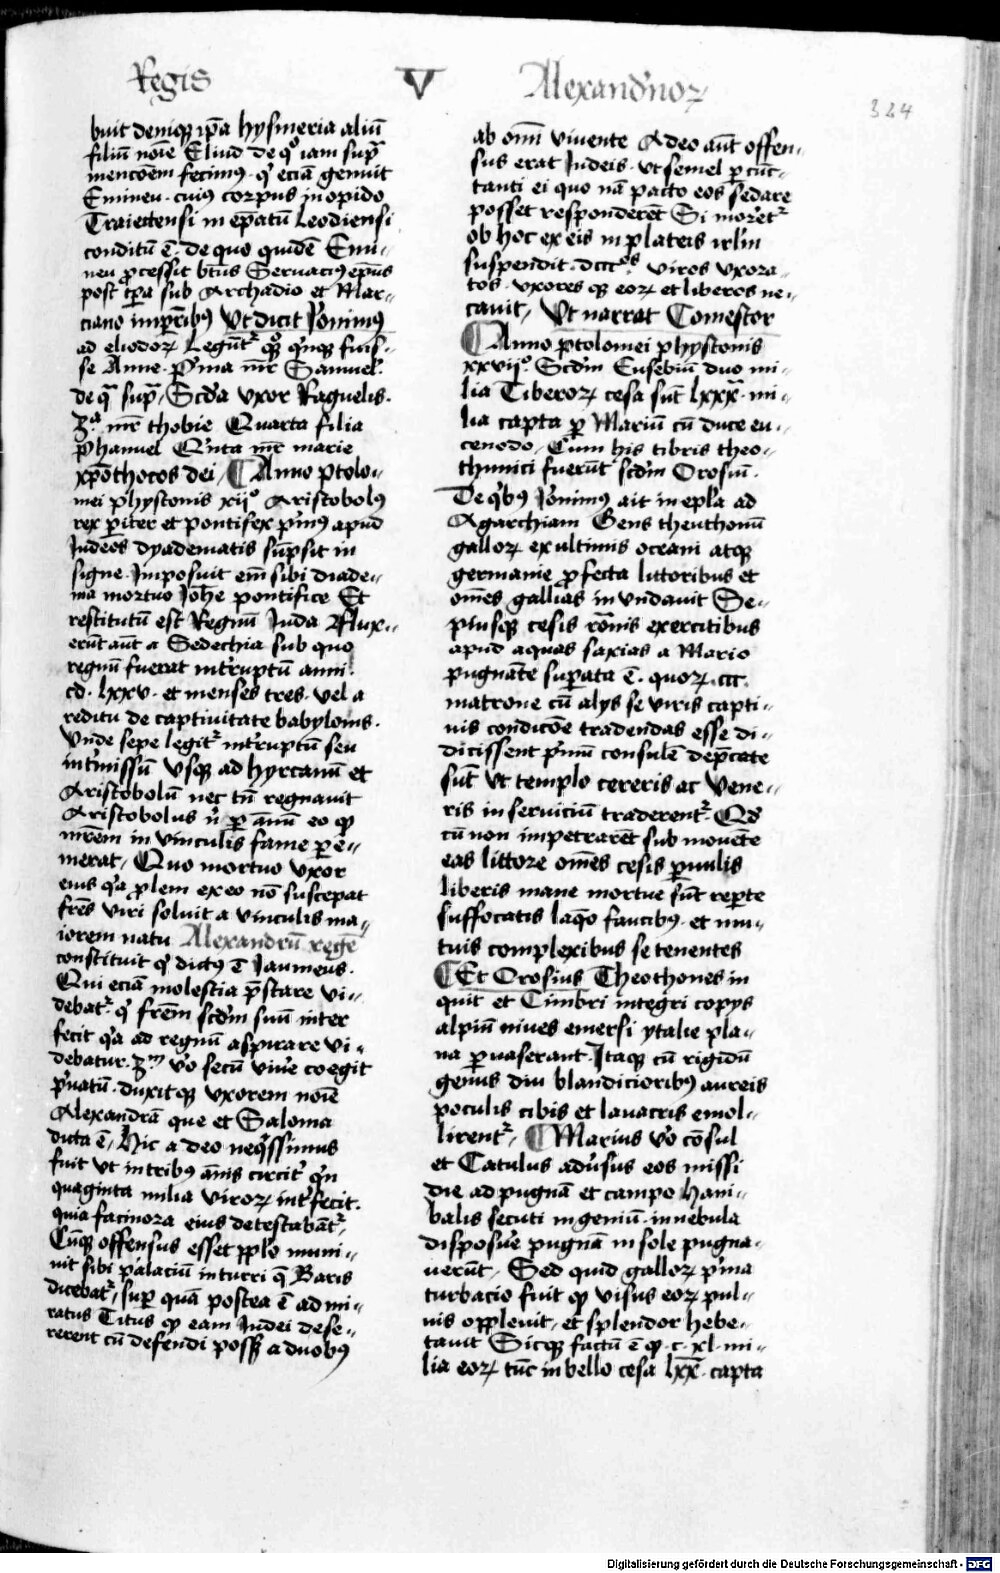 Regis V Alexandrinoꝝ
324
buit deniqꝫ ip̄a hysmeria aliū
filiū noīe Eliud de qͦ iam supᷓ
mencōem fecimꝰ · qͥ eciā genuit
Emineu · cuiꝰ corpus in opido
Traiectensi in ep̄atū Leodiensi
conditū ē · de quo quidē Emi-
neu ꝓcessit btūs Servaciꝰ ep̄us
post tp̄a sub Archadio et Mar-
ciano imp̄ribꝰ Ut dicit Jeronimꝰ
ad eliodoꝝ Legūtᷣ qͦqꝫ qͥnqꝫ fuis-
se Anne · Pͥma mr̄ Samuel ·
de qᷓ supᷓ · Scd̄a uxor Raguelis ·
3ᵃ mr̄ thobie Quarta filia
Phanuel Qͥnta mr̄ marie
xp̄othocos dei · Anno ptolo-
mei physconis xijͦ Aristobolꝰ
rex pͥter et pontifex pͥmꝰ apud
Judeos dyadematis sūpsit in
signe · Imposuit em̄ sibi diade-
ma mortuo Joh̄e pontifice Et
restitutū est Regnū Juda Flux-
erūt aūt a Sedechia sub quo
regnū fuerat int̄ruptū anni
cd · lxxv · et menses tres · vel a
reditu de captivitate babylonis ·
Unde sepe legitᷣ int̄ruptū seu
int̄missū usqꝫ ad hyrcanū et
Aristobolū nec tn̄ regnavit
Aristobolus n̄ ꝑ annū eo qꝫ
mr̄em in vinculis fame ꝑe-
merat · Quo mortuo uxor
eius qͥa ꝓlem ex eo nō suscepat
frēs viri soluit a vinculis ma-
iorem natu Alexandrū regē
constituit qͥ dictꝰ ē Janneus ·
Qui eciā molestia p̄stare vi-
debatᷣ · qͥ frēm scd̄m suū inter
fecit qͥa ad regnū aspirare vi-
debatur · 3ᵐ vͦo secū vivͤe coegit
pͥvatū · duxitqꝫ uxorem noīe
Alexandrā que et Saloma
dicta ē · Hic a deo neqͥssimus
fuit ut in tribꝰ annis circitͤ qͥn
quaginta milia viroꝝ int̄fecit ·
quia facinora eius detestabātᷣ
Cūqꝫ offensus esset pp̄lo muni-
vit sibi palaciū in turri qᷓ Baris
dicebatᷣ · supͤ quā postea ē admi-
ratus Titus qꝫ eam Judei dese-
rerent cū defendi possꝫ a duobꝰ
ab om̄i vivente Adeo aūt offen-
sus erat Judeis · ut semel ꝑcūc-
tanti ei quo nā pacto eos sedare
posset responderēt Si moretᷣ
ob hoc ex eis in plateis irl̄m
suspendit · dcccᵒˢ viros uxora-
tos · uxores qꝫ eoꝝ et liberos ne-
cavit · Ut narrat Comestor
Anno ptolomei physconis
xxvijͦ · Scd̄m Eusebiū duo mi-
lia Tiberoꝝ cesa sūt lxxxᵃ mi-
lia capta ꝑ Mariū cū duce eu-
cenodo · Cum his tibris theo-
thunici fuerūt scd̄m Orosiū ·
De qͥbꝰ Jeronimꝰ ait in ep̄la ad
Agarchiam Gens theuthonū
galloꝝ ex ultimis oceani atqꝫ
germanie ꝓfecta littoribus et
om̄es gallias inundavit Se-
piusqꝫ cesis romīs exercitibus
apud aquas saxias a Mario
pugnāte supata ē · quoꝝ ccc ·
matrone cū alijs se viris capti-
vis condicōe tradendas esse di-
dicissent pͥmū consulē dep̄cate
sūt ut templo cereris ac Vene-
ris in serviciū traderentᷣ · Qd
cū non impetrarēt submovēte
eas littore om̄es cesis ꝑvulis
liberis mane mortue sūt repͤte
suffocatis laqͤo faucibꝰ · et mu-
tuis complexibus se tenentes
Et Orosius Theothones in
quit et Timbri integri copijs
alpiū nives emersi ytalie pla-
na ꝑvaserant · Itaqꝫ cū rigidū
genus diu blandicioribꝰ aureis
poculis cibis et lavacris emol-
lirentᷣ · Marius vͦo cōsul
et Catulus adūsus eos missi
die ad pugnā et campo Hani-
balis secuti ingeniū · in nebula
disposuͤe pugnā in sole pugna-
verūt · Sed quid galloꝝ pͥma
turbacio fuit qꝫ visus eoꝝ pul-
vis opplevit · et splendor hebe-
tavit Sicqꝫ factū ē qꝫ · c · xl · mi-
lia eoꝝ tūc in bello cesa lxᵃ · capta
Digitalisierung gefördert durch die Deutsche Forschungsgemeinschaft - DFG